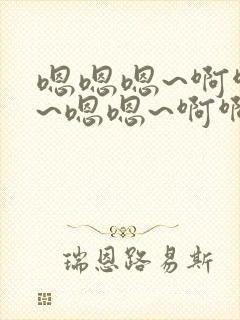 嗯嗯嗯~啊
~嗯嗯~啊啊
瑞恩路易斯